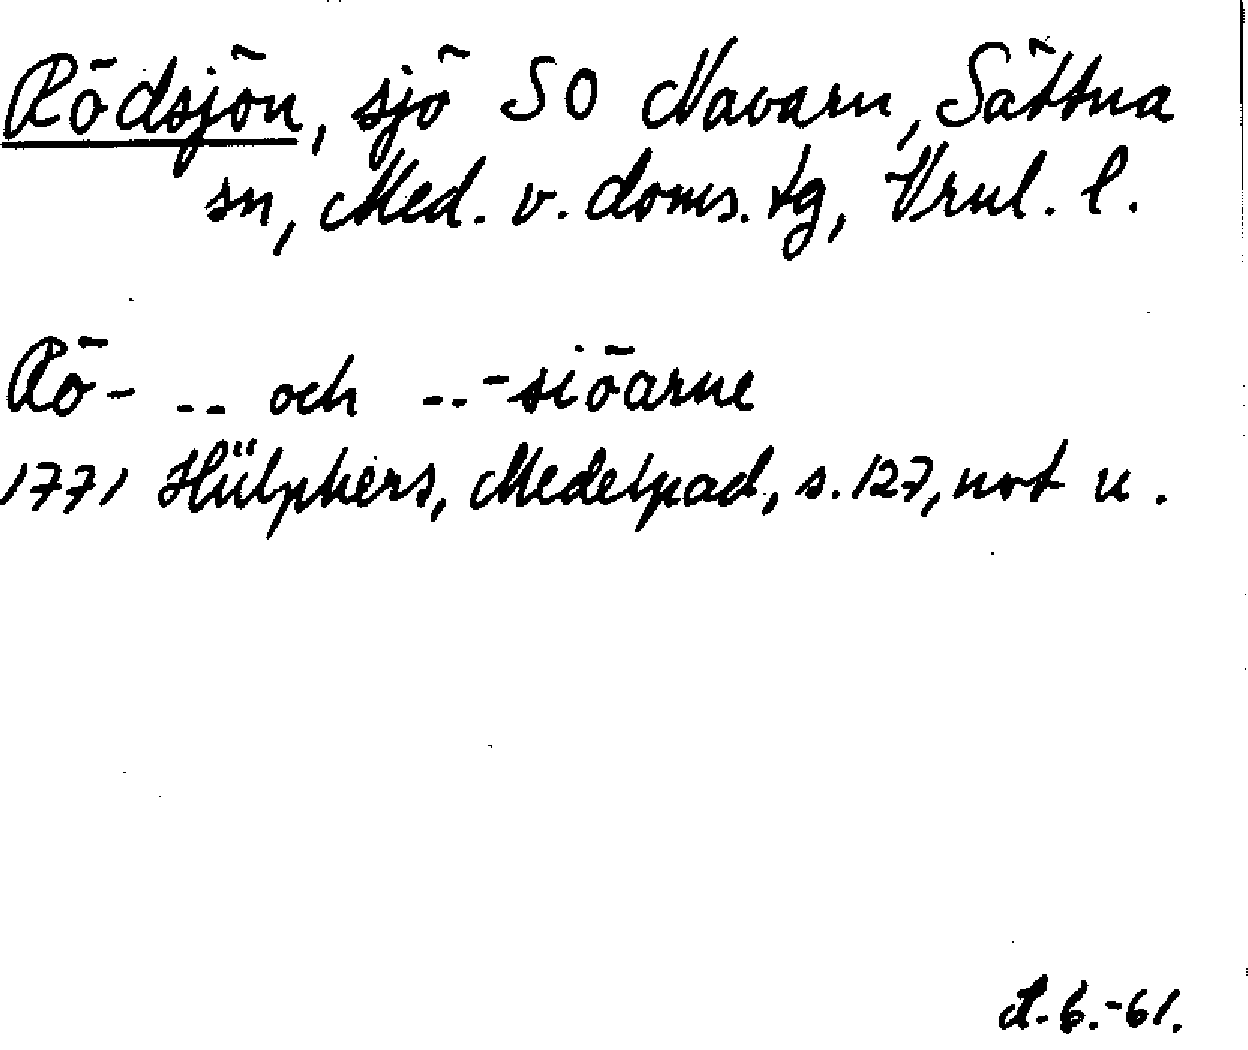 Rödsjön, sjö SO Navarn, Sättna
sn, Med. v. doms. tg, Vrnl. l.
Rö- -- och --- siöarne
1771 Hülphers, Medelpad, s. 127, not u.
-61.